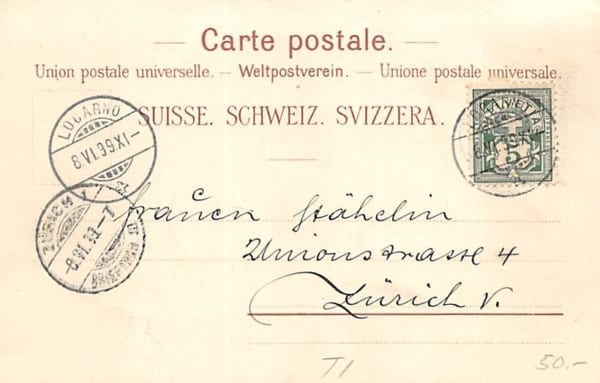 Carte postale.
Union postale universelle. — Weltpostverein. — Unione postale universale.
SUISSE. SCHWEIZ. SVIZZERA.
LOCARNO
8.VI.99.XI-
HELVETIA
5
Frauen Stähelin
Unionstrasse 4
Zürich V.
ZÜRICH V
8.VI.99.-7
T1
50.-